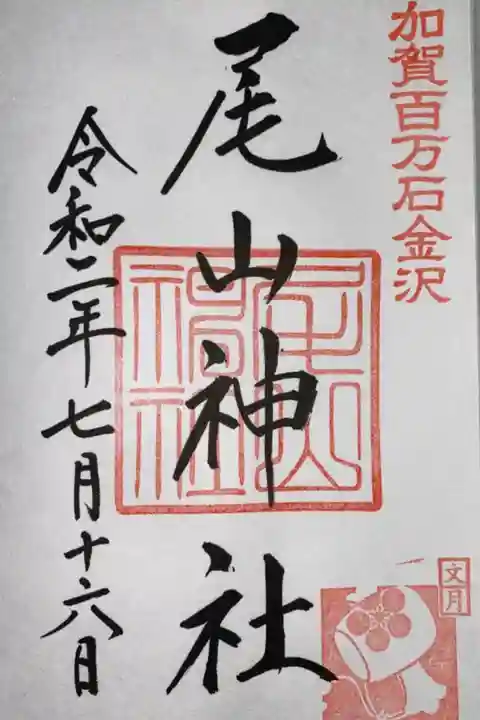 加賀百万石金沢
尾山神社
令和二年七月十六日
尾山神社
文月